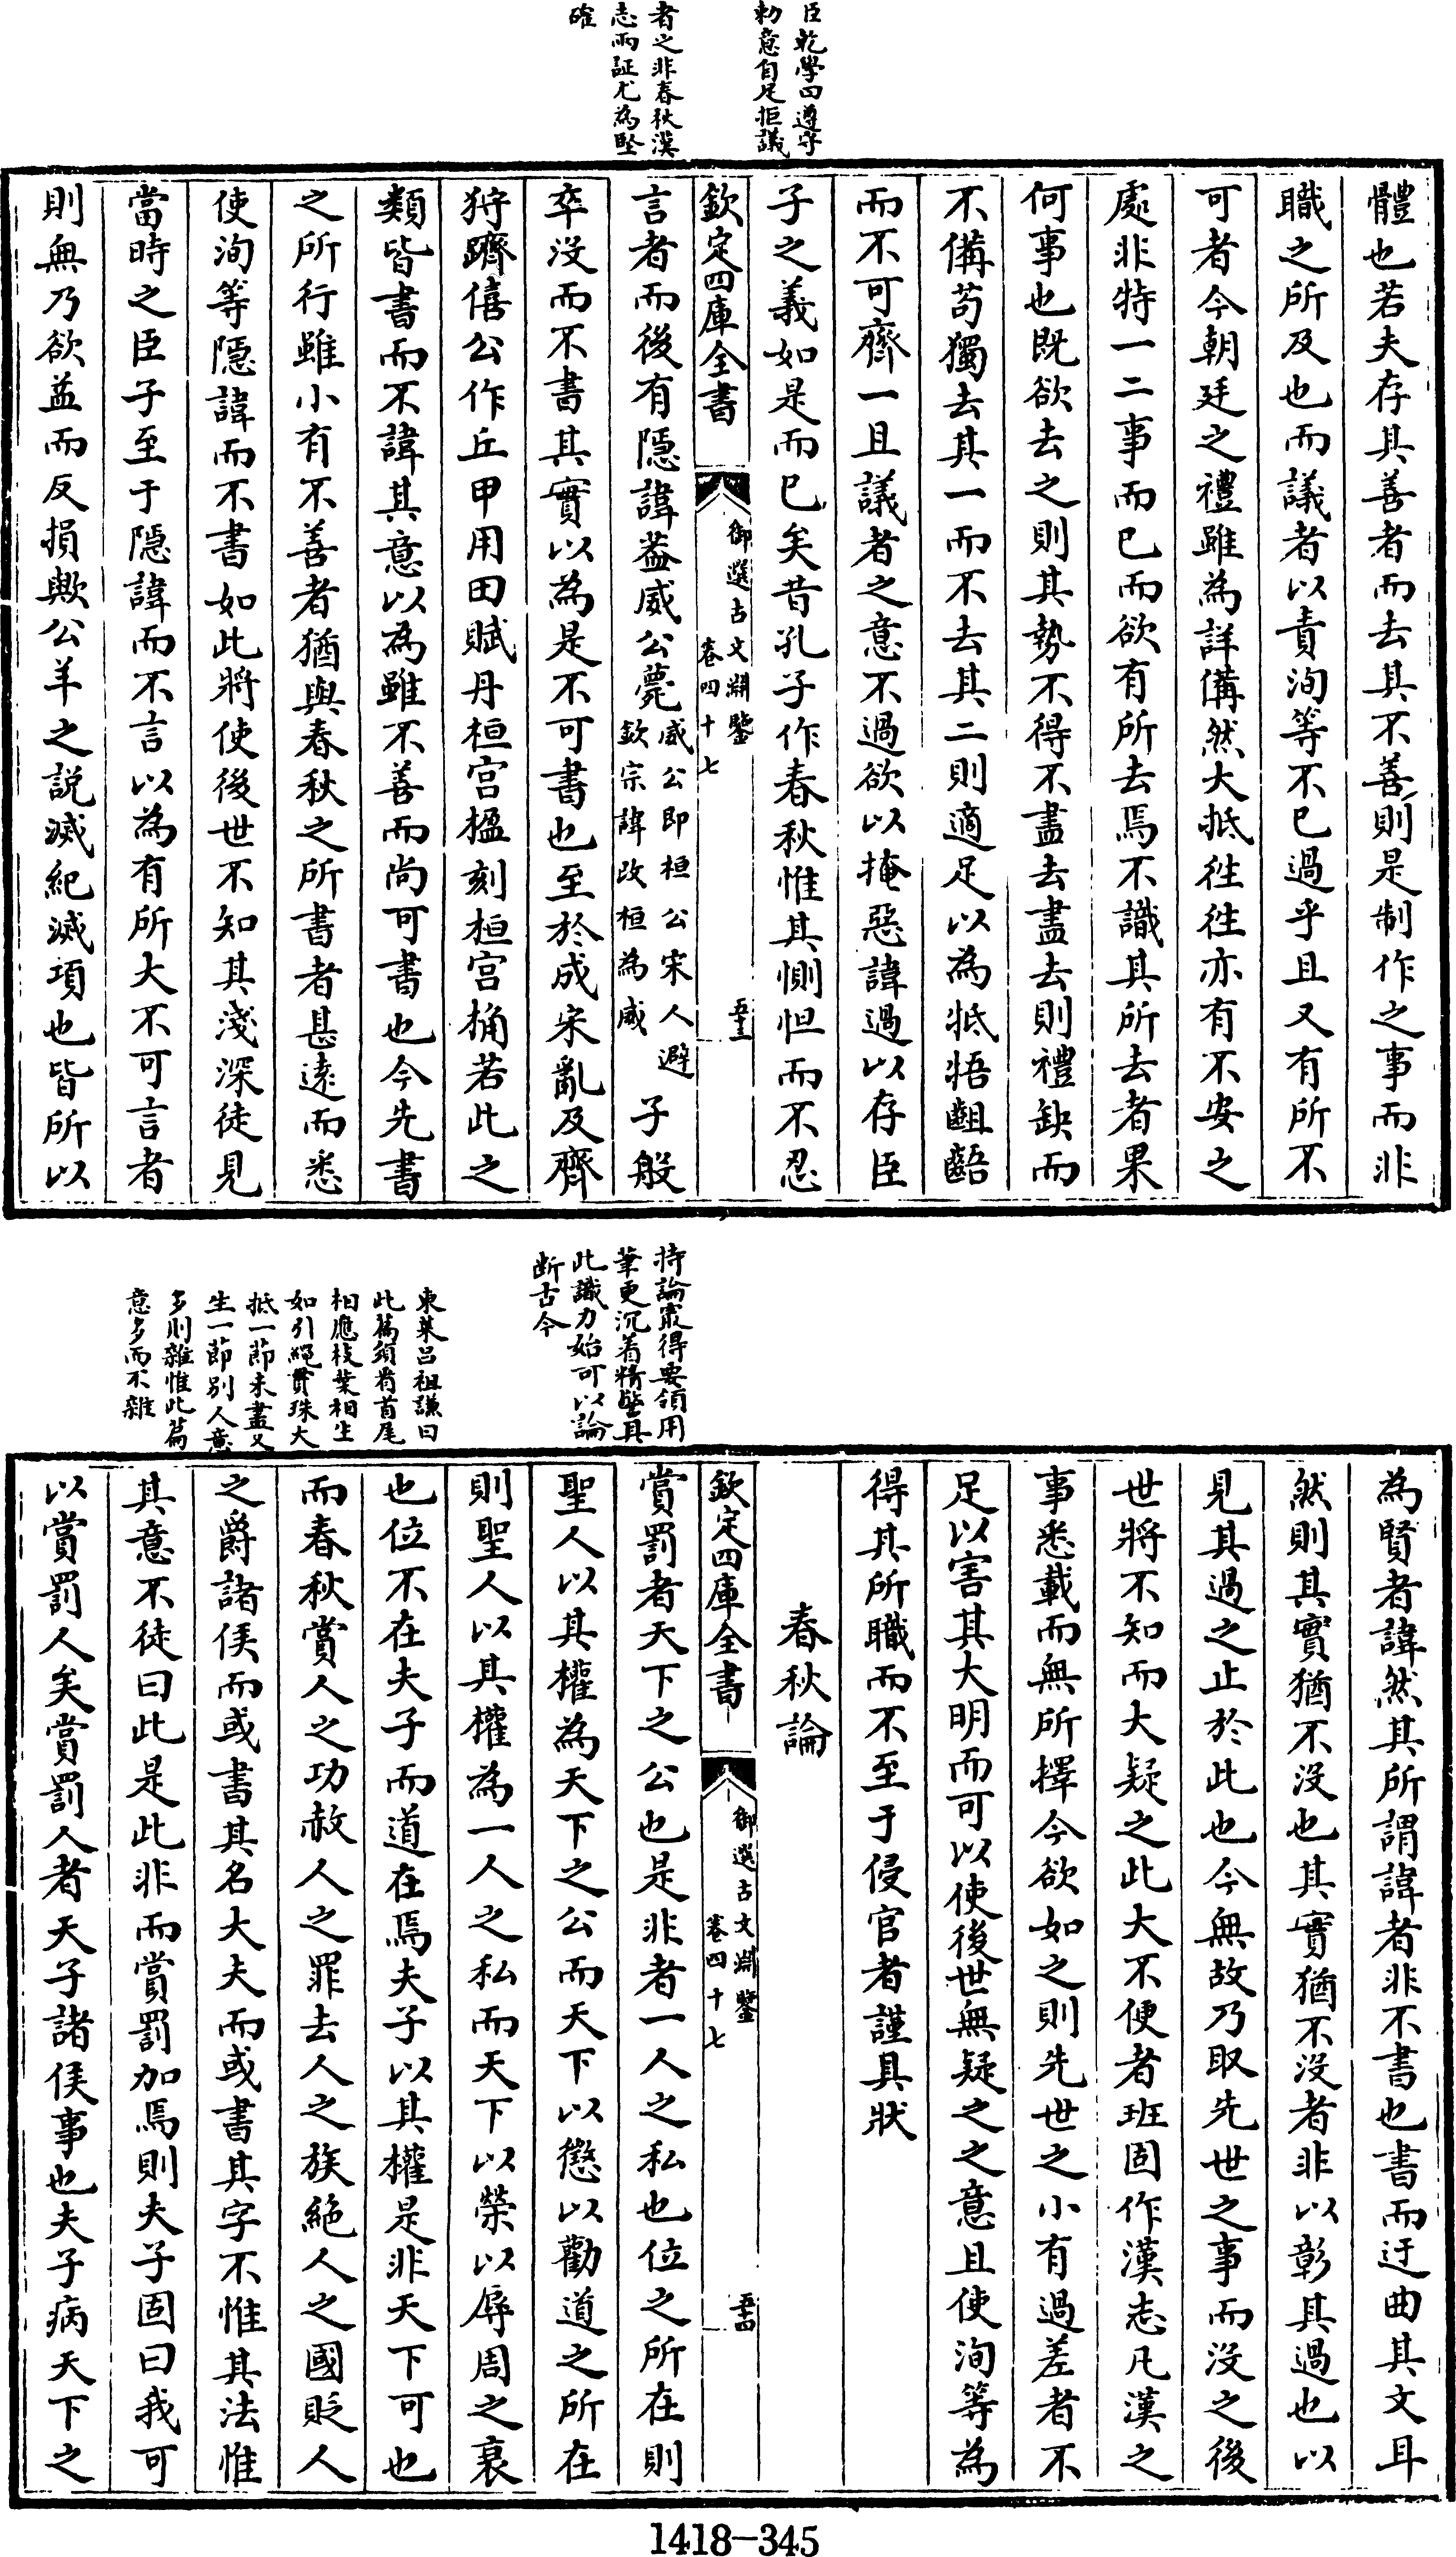 臣乾學曰遵守
勅意自足拒議
者之非春秋漢
志兩証尤為堅
確
體也若夫存其善者而去其不善則是制作之事而非
職之所及也而議者以責洵等不已過乎且又有所不
可者今朝廷之禮雖為詳備然大抵徃徃亦有不安之
處非特一二事而已而欲有所去焉不識其所去者果
何事也既欲去之則其勢不得不盡去盡去則禮缺而
不備苟獨去其一而不去其二則適足以為牴牾齟齬
而不可齊一且議者之意不過欲以掩惡諱過以存臣
子之義如是而已矣昔孔子作春秋惟其惻怛而不忍
欽定四庫全書
御選古文淵鑒
卷四十七
五十三
言者而後有隱諱葢威公薨
威公即桓公宋人避
欽宗諱改桓為威
子般
卒没而不書其實以為是不可書也至於成宋亂及齊
狩躋僖公作丘甲用田賦丹桓宫楹刻桓宫桷若此之
類皆書而不諱其意以為雖不善而尚可書也今先書
之所行雖小有不善者猶與春秋之所書者甚遠而悉
使洵等隱諱而不書如此將使後世不知其淺深徒見
當時之臣子至于隱諱而不言以為有所大不可言者
則無乃欲益而反損歟公羊之説滅紀滅項也皆所以
持論㝡得要領用
筆更沉着精堅具
此識力始可以論
斷古今
東萊呂祖謙曰
此篇須看首尾
相應枝葉相生
如引繩貫珠大
抵一節未盡又
生一節别人意
多則雜惟此篇
意多而不雜
為賢者諱然其所謂諱者非不書也書而迂曲其文耳
然則其實猶不没也其實猶不没者非以彰其過也以
見其過之止於此也今無故乃取先世之事而没之後
世將不知而大疑之此大不便者班固作漢志凡漢之
事悉載而無所擇今欲如之則先世之小有過差者不
足以害其大明而可以使後世無疑之之意且使洵等為
得其所職而不至于侵官者謹具狀
春秋論
欽定四庫全書
御選古文淵鑒
卷四十七
五十四
賞罰者天下之公也是非者一人之私也位之所在則
聖人以其權為天下之公而天下以懲以勸道之所在
則聖人以其權為一人之私而天下以榮以辱周之衰
也位不在夫子而道在焉夫子以其權是非天下可也
而春秋賞人之功赦人之罪去人之族絶人之國貶人
之爵諸侯而或書其名大夫而或書其字不惟其法惟
其意不徒曰此是此非而賞罰加焉則夫子固曰我可
以賞罰人矣賞罰人者天子諸侯事也夫子病天下之
1418-345